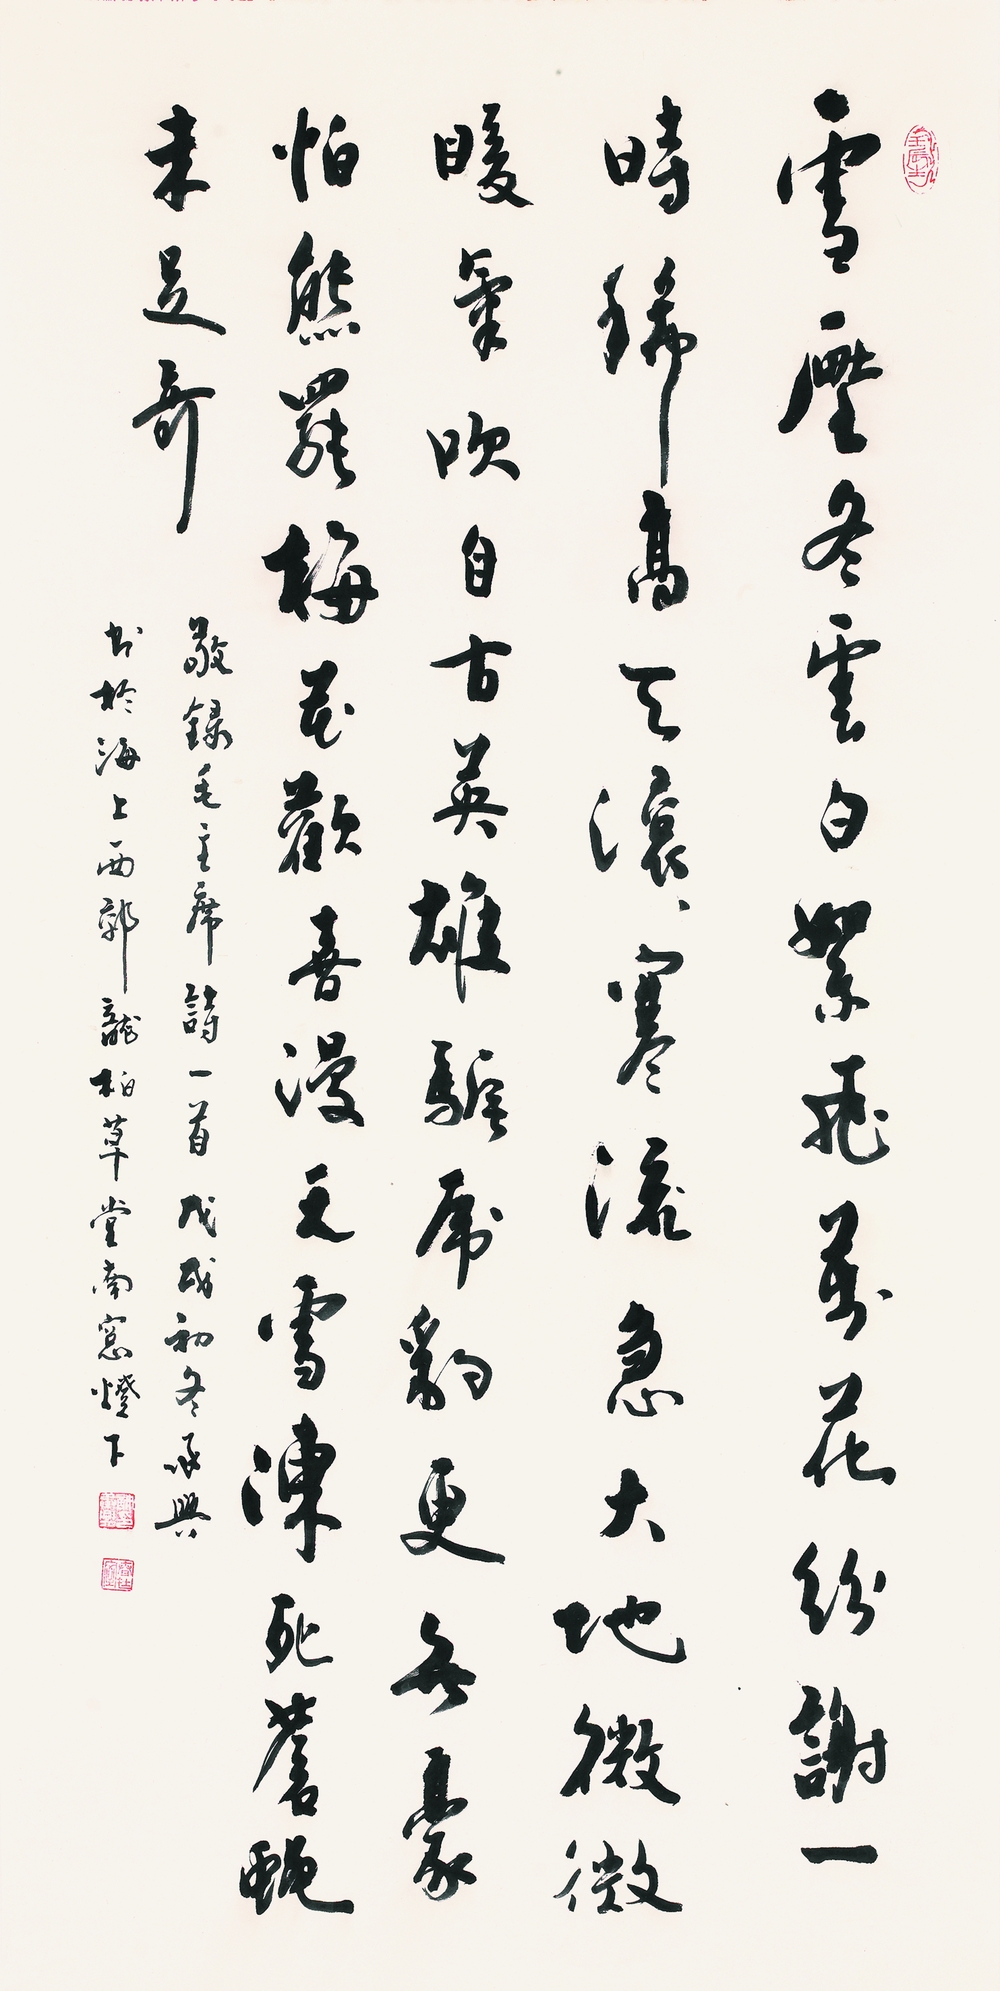 雪壓冬雲白絮飛萬花紛謝一
時稀高天滾、寒流急大地微微
暖氣吹自古英雄驅虎豹更無豪
怕熊羆梅花歡喜漫天雪凍死蒼蠅
未足奇
敬録毛主席詩一首戊戌初冬承興
书於海上西郭龍柏草堂南窗燈下